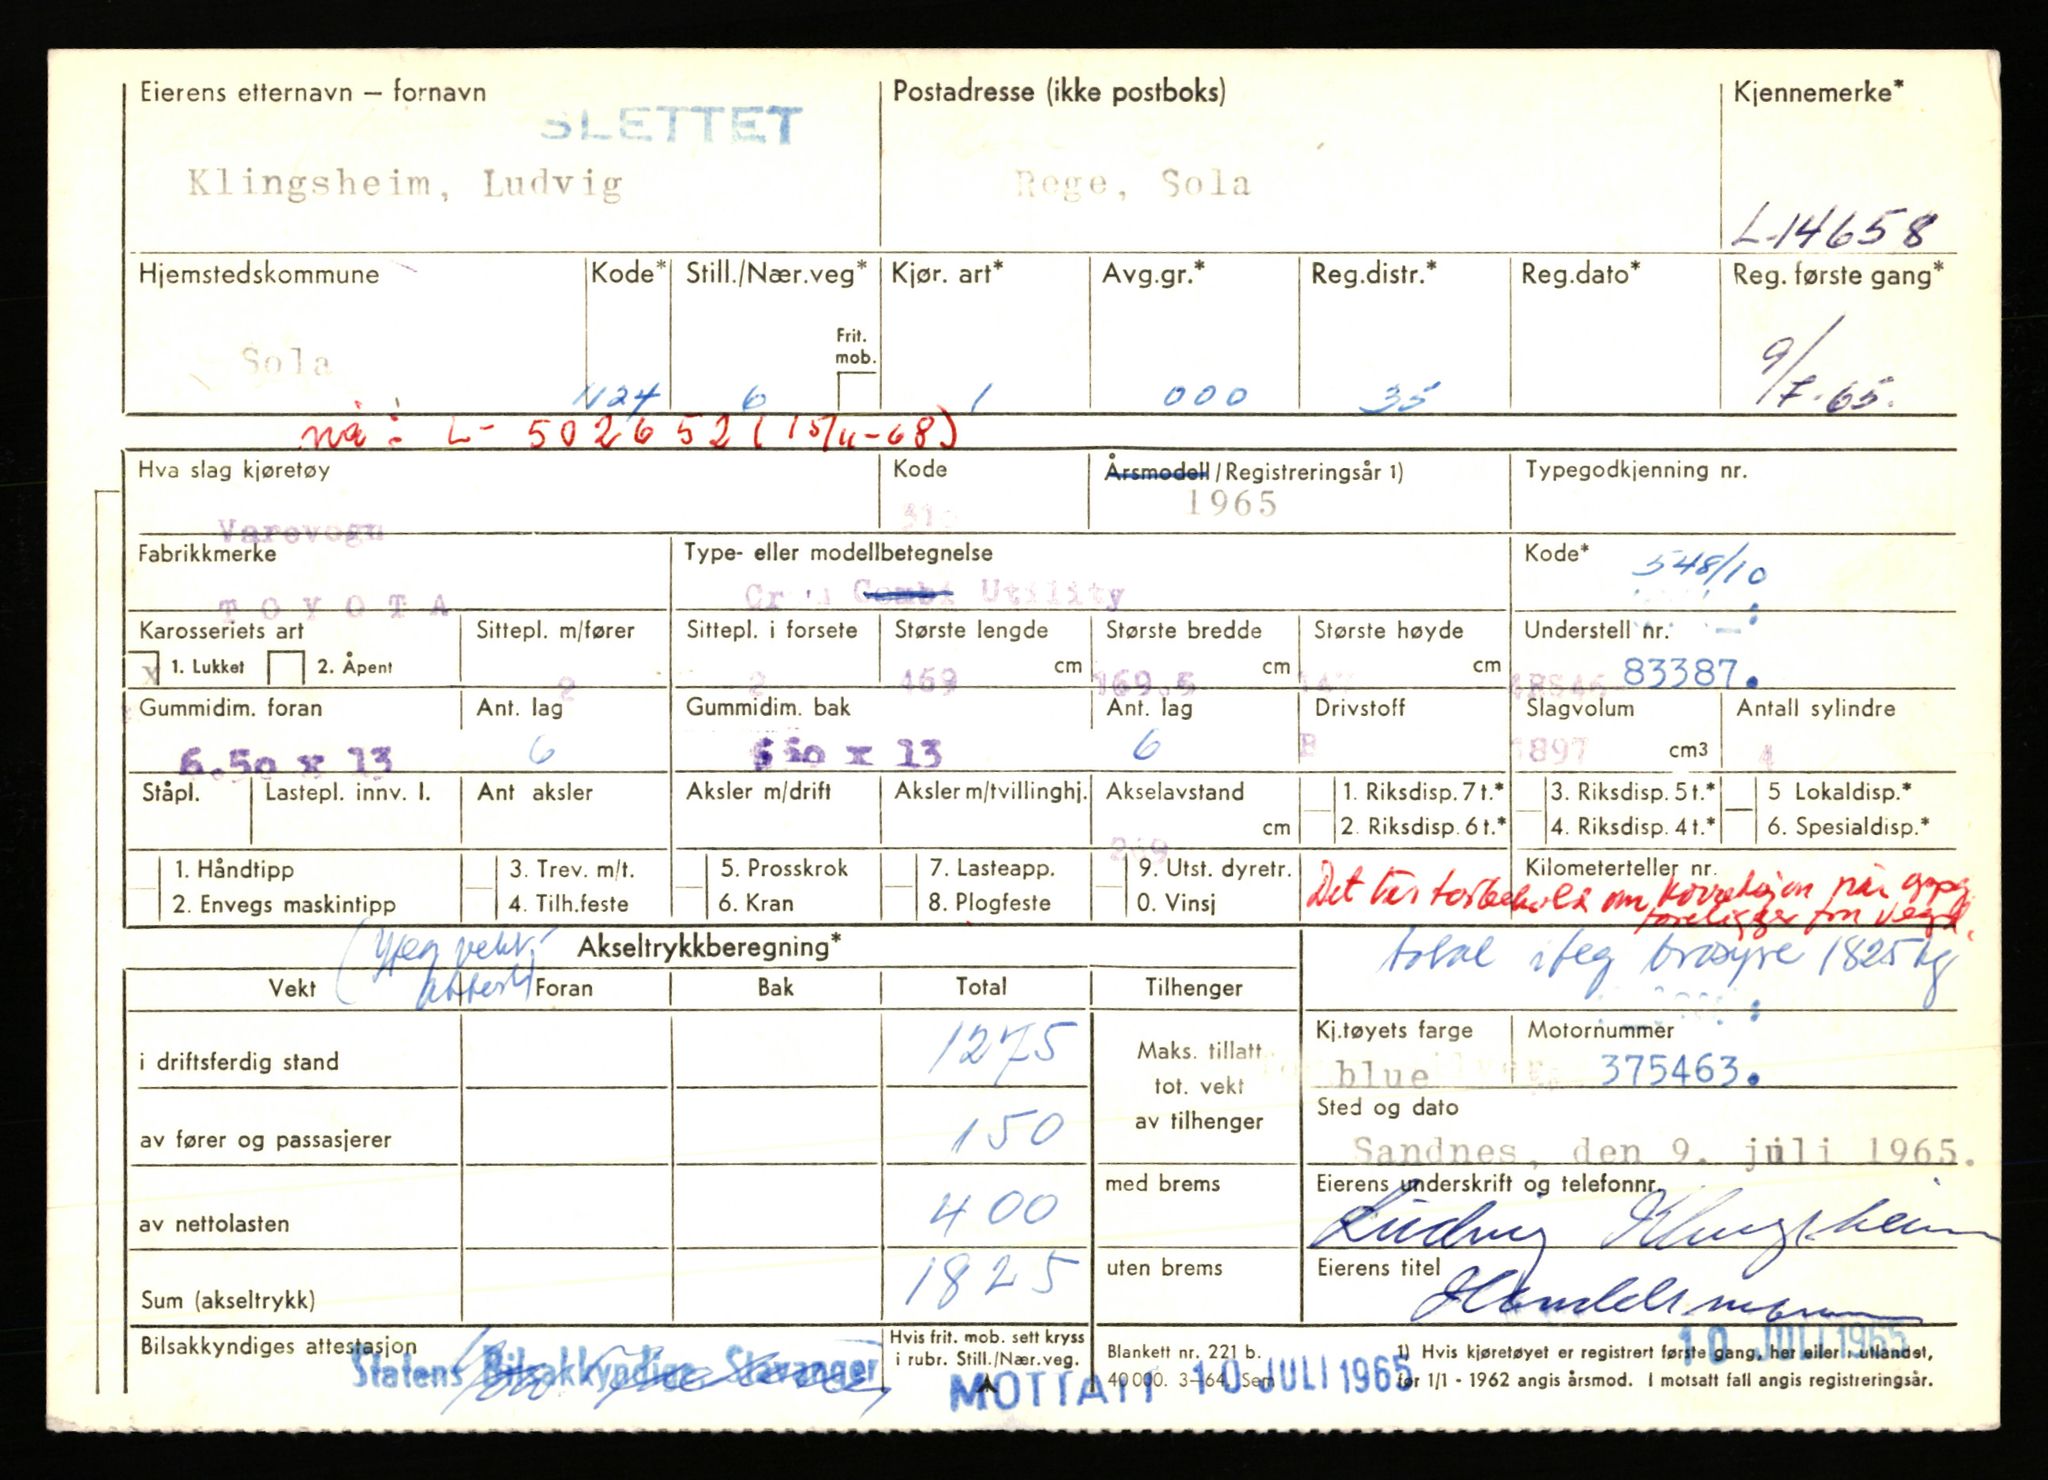 Eierens etternavn – fornavn
Postadresse (ikke postboks)
Kjennemerke*
SLETTET
Klingsheim, Ludvig
Rege, Sola
L-14658
Hjemstedskommune
Kode*
Still./Nær.veg*
Kjør. art*
Avg.gr.*
Reg.distr.*
Reg.dato*
Reg. første gang*
Frit. mob.
Sola
1124
6
1
000
35
9/7-65.
nå: L- 502652 (15/11-68)
Hva slag kjøretøy
Kode
Årsmodell/Registreringsår 1)
Typegodkjenning nr.
Varevogn
1965
Fabrikkmerke
Type- eller modellbetegnelse
Kode*
548/10
TOYOTA
Combi Utility
Karosseriets art
Sittepl. m/fører
Sittepl. i forsete
Største lengde
Største bredde
Største høyde
Understell nr.
x 1. Lukket
2. Åpent
2
2
469 cm
169.5 cm
cm
83387.
Gummidim. foran
Ant. lag
Gummidim. bak
Ant. lag
Drivstoff
Slagvolum
Antall sylindre
6.50 x 13
6
x 13
6
B
1897 cm3
4
Ståpl.
Lastepl. innv. l.
Ant aksler
Aksler m/drift
Aksler m/tvillinghj.
Akselavstand
cm
269
1. Riksdisp. 7 t.*
2. Riksdisp. 6 t.*
3. Riksdisp. 5 t.*
4. Riksdisp. 4 t.*
5 Lokaldisp.*
6. Spesialdisp.*
1. Håndtipp
3. Trev. m/t.
5. Prosskrok
7. Lasteapp.
9. Utst. dyretr.
Kilometerteller nr.
2. Envegs maskintipp
4. Tilh.feste
6. Kran
8. Plogfeste
0. Vinsj
Det tas forbehold om korreksjon når oppg.
foreligger fra vegd.
Akseltrykkberegning*
total i flg brosyre 1825 kg
Vekt
Foran
Bak
Total
Tilhenger
i driftsferdig stand
1275
Maks. tillatt
tot. vekt
av tilhenger
Kj.tøyets farge
Motornummer
blue
375463.
av fører og passasjerer
150
Sted og dato
Sandnes, den 9. juli 1965.
av nettolasten
400
med brems
Eierens underskrift og telefonnr.
Ludvig Klingsheim
Sum (akseltrykk)
1825
uten brems
Eierens titel
Handelsmann
10 JULI 1965
Bilsakkyndiges attestasjon
Statens Bilsakkyndige Stavanger
Hvis frit. mob. sett kryss
i rubr. Still./Nær.veg.
MOTTATT 10 JULI 1965
Blankett nr. 221 b.
40 000. 3–64. Sem
1) Hvis kjøretøyet er registrert første gang, her eller i utlandet,
før 1/1 - 1962 angis årsmod. I motsatt fall angis registreringsår.